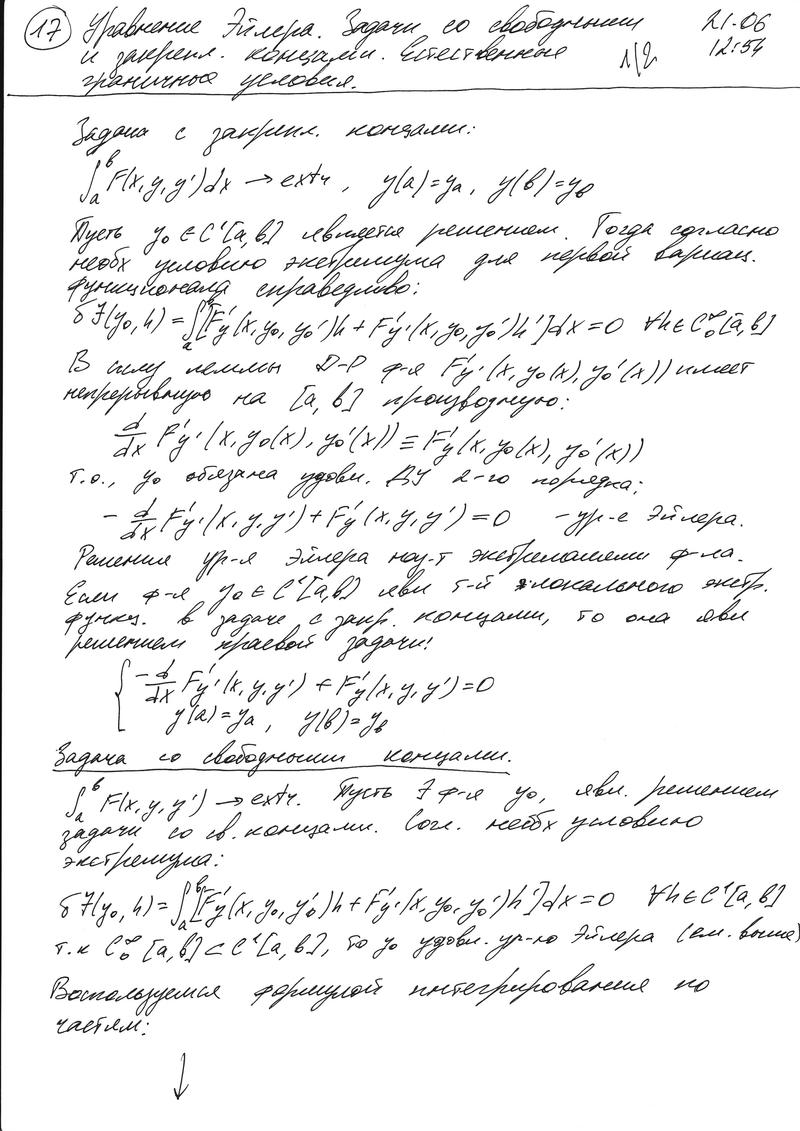 17 Уравнение Эйлера. Задачи со свободными 21.06
и закрепл. концами. Естественные 1/2 12:54
граничные условия.
Задача с закрепл. концами:
∫_a^b F(x, y, y')dx → extr, y(a)=y_a, y(b)=y_b
Пусть y₀ ∈ C¹[a,b] является решением. Тогда согласно
необх условию экстремума для первой вариац.
функционала справедливо:
δJ(y₀, h) = ∫_a^b [F'_y(x, y₀, y₀')h + F'_y'(x, y₀, y₀')h']dx = 0 ∀h ∈ C₀^∞[a,b]
В силу леммы D-R ф-я F'_y'(x, y₀(x), y₀'(x)) имеет
непрерывную на [a, b] производную:
d/dx F'_y'(x, y₀(x), y₀'(x)) ≡ F'_y(x, y₀(x), y₀'(x))
т.о., y₀ обязана удовл. ДУ 2-го порядка:
- d/dx F'_y'(x, y, y') + F'_y(x, y, y') = 0 - ур-е Эйлера.
Решения ур-я Эйлера наз-т экстремалями ф-ла.
Если ф-я y₀ ∈ C¹[a,b] явл т-й локального экстр.
функц. в задаче с закр. концами, то она явл
решением краевой задачи:
{ - d/dx F'_y'(x, y, y') + F'_y(x, y, y') = 0
y(a) = y_a, y(b) = y_b
Задача со свободными концами.
∫_a^b F(x, y, y') → extr. Пусть ∃ ф-я y₀, явл. решением
задачи со св. концами. Согл. необх условию
экстремума:
δJ(y₀, h) = ∫_a^b [F'_y(x, y₀, y₀')h + F'_y'(x, y₀, y₀')h']dx = 0 ∀h ∈ C¹[a,b]
т.к C₀^∞[a,b] ⊂ C¹[a,b], то y₀ удовл. ур-ю Эйлера (см. выше)
Воспользуемся формулой интегрирования по
частям:
↓